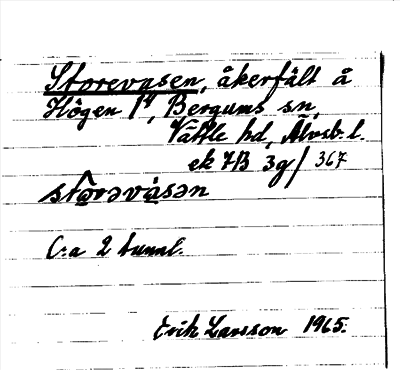 Storevasen, åkerfält å
Högen 1⁴, Bergums sn,
Vättle hd, Älvsb. l.
ek 7B 3g/367
stōrəvàsən
C:a 2 tunnl.
Erik Larsson 1965.